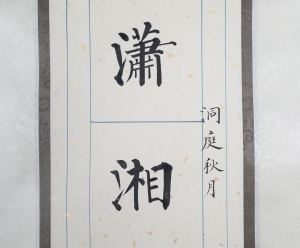 瀟湘
洞庭秋月